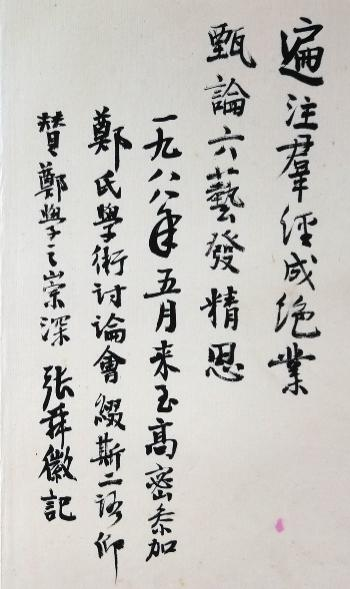 遍注羣經成绝業
甄論六藝發精思
一九八八年五月来至高密参加
鄭氏學術討論會綴斯二語仰
赞鄭學之崇深 張舜徽記